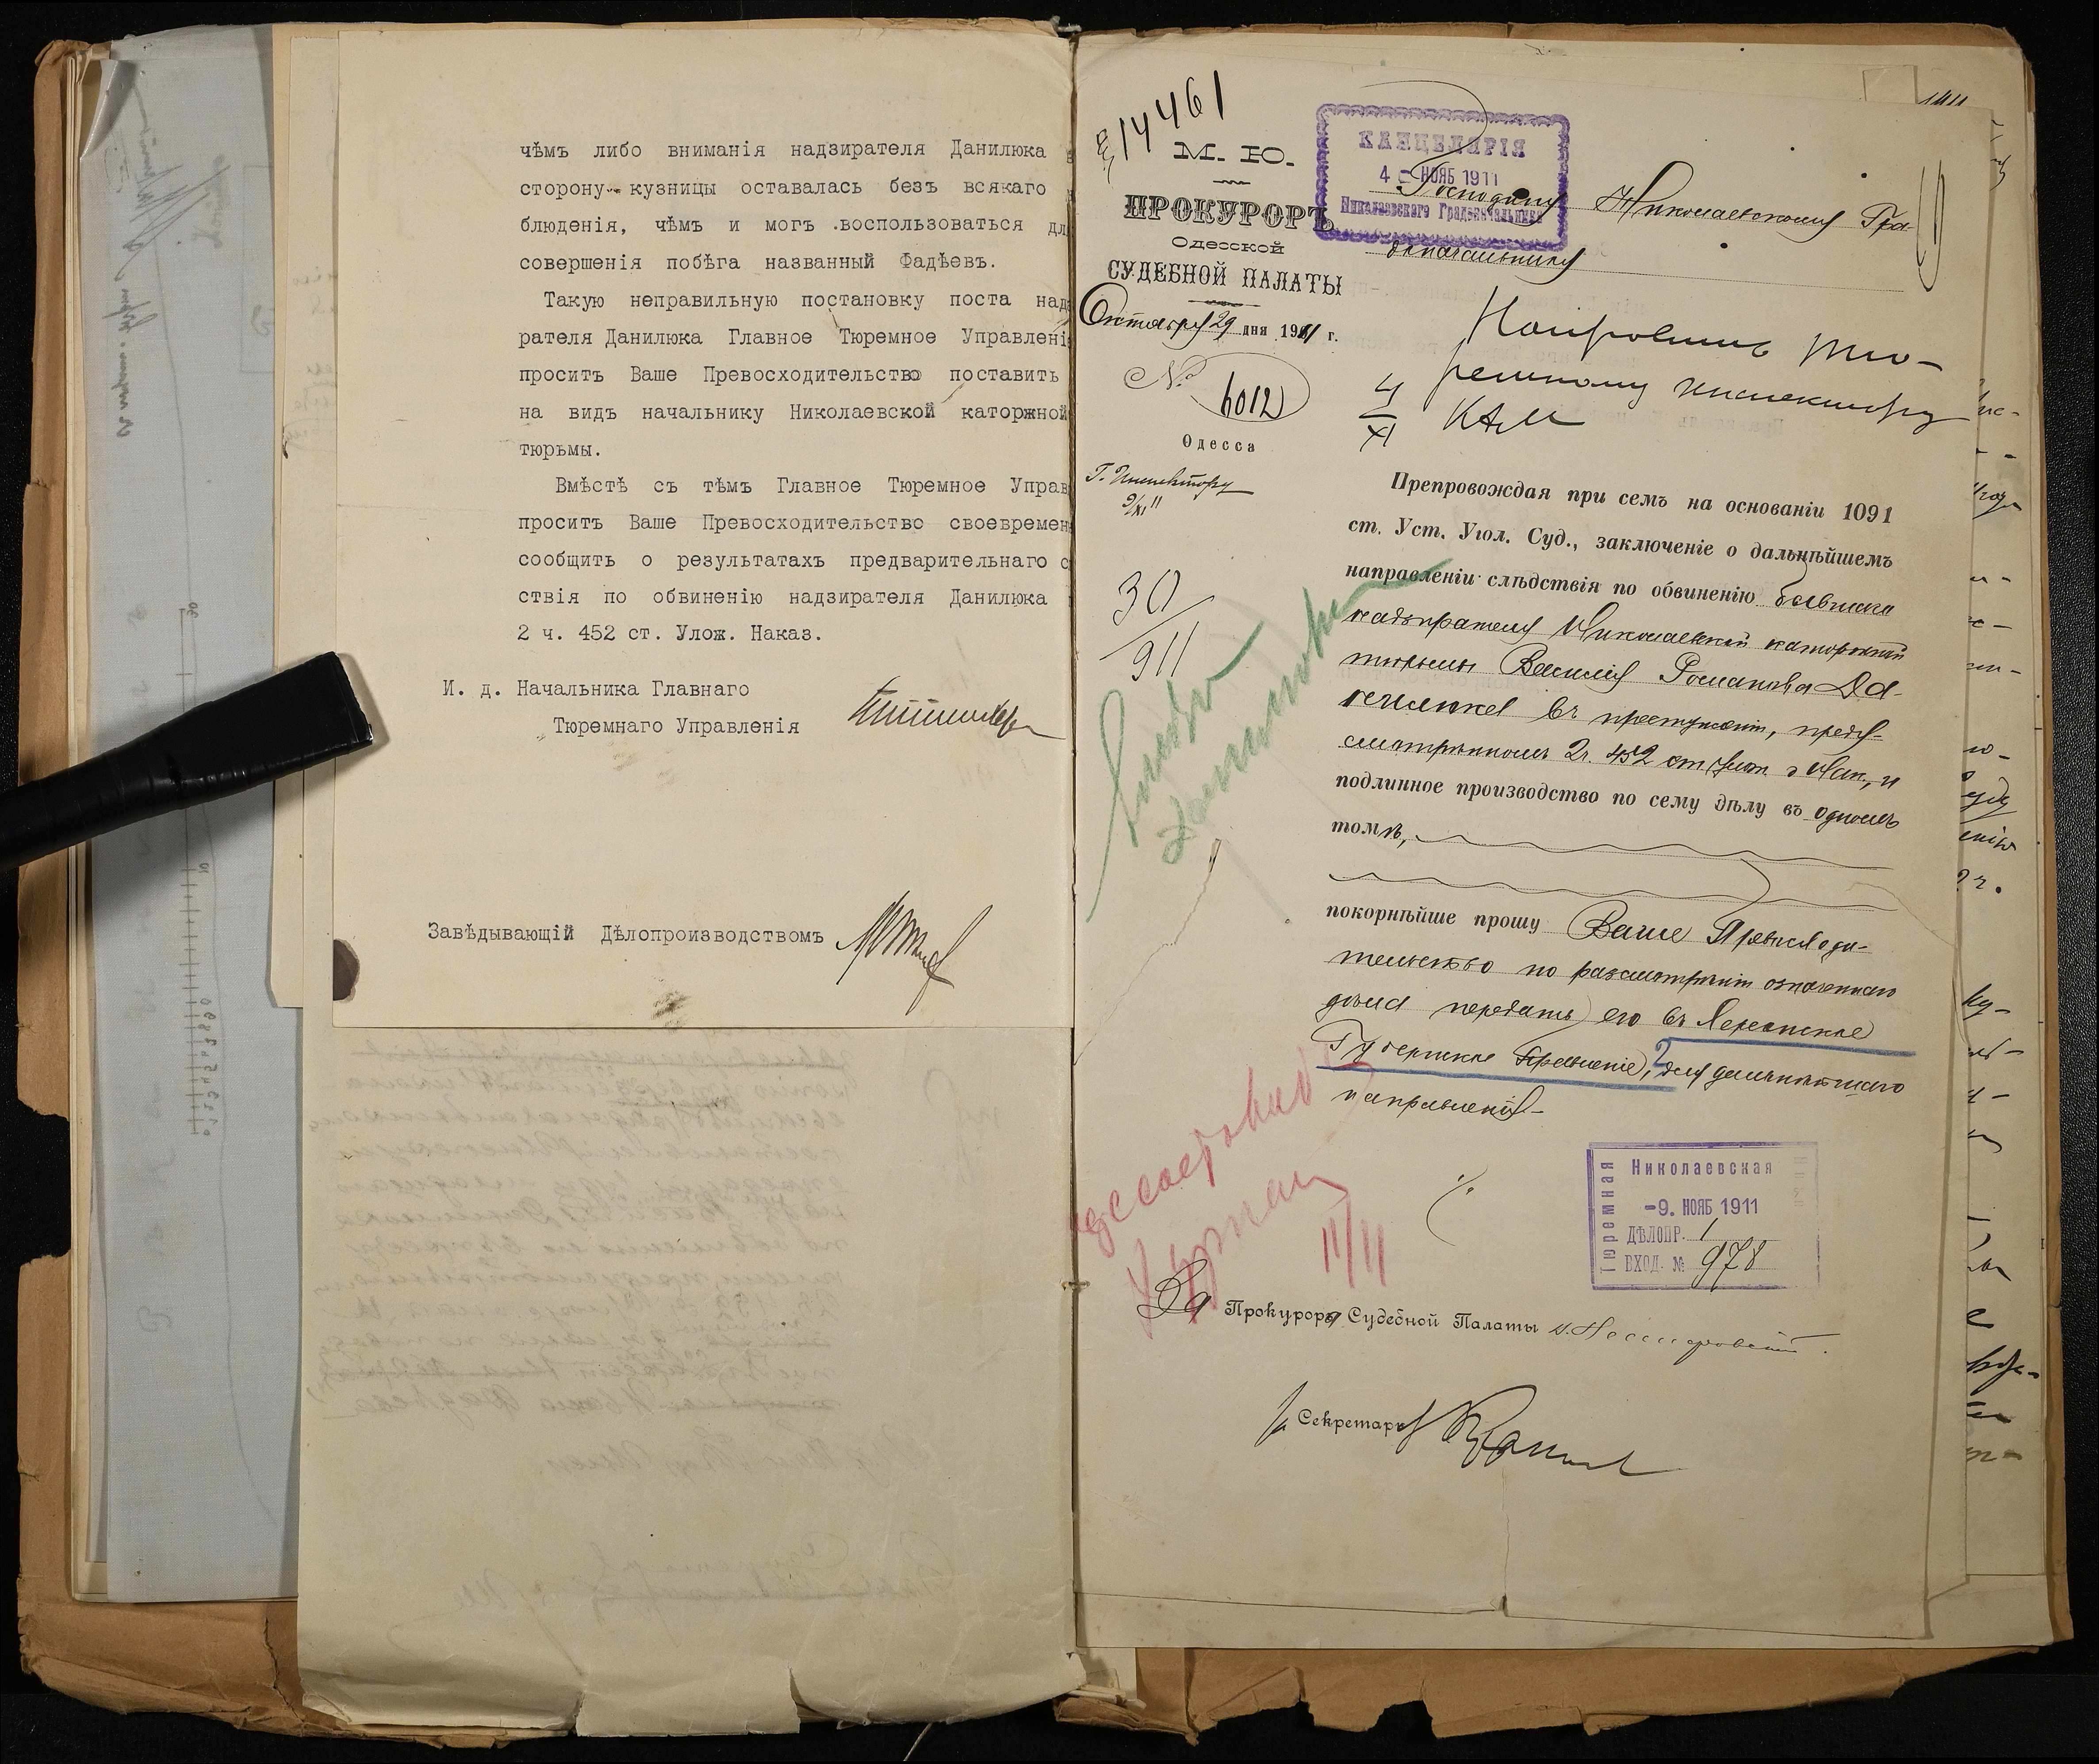 чѣмъ либо вниманія надзирателя Данилюка
сторону кузницы оставалась безъ всякаго
блюденія, чѣмъ и могъ воспользоваться дл
совершенія побѣга названный Фадѣевъ.
Такую неправильную постановку поста над
рателя Данилюка Главное Тюремное Управлені
проситъ Ваше Превосходительство поставить
на видъ начальнику Николаевской каторжной
тюрьмы.
Вмѣстѣ съ тѣмъ Главное Тюремное Управ
проситъ Ваше Превосходительство своевремен
сообщить о результатахъ предварительнаго с
ствія по обвиненію надзирателя Данилюка
2 ч. 452 ст. Улож. Наказ.
И. д. Начальника Главнаго
Тюремнаго Управленія
Завѣдывающій Дѣлопроизводствомъ
14461
М. Ю.
ПРОКУРОРЪ
Одесской
СУДЕБНОЙ ПАЛАТЫ
Октября 29 дня 1911 г.
№ 6012
Одесса
Г. Инспектору
9/XI 11
30/911
КАНЦЕЛЯРІЯ
4 - НОЯБ 1911
Николаевского Градоначальника
Господину Николаевскому Гра-
доначальнику
Направить тю-
ремному инспектору
4/XI
Препровождая при семъ на основаніи 1091
ст. Уст. Угол. Суд., заключеніе о дальнѣйшемъ
направленіи слѣдствія по обвиненію бывшаго
надзирателя Николаевской каторжной
тюрьмы Василія Романова Да-
нилюка въ преступленіи, преду-
смотрѣнномъ 2 ч. 452 ст Улож. о Нак., и
подлинное производство по сему дѣлу въ одномъ
томѣ,
покорнѣйше прошу Ваше Превосходи-
тельство по разсмотрѣніи означеннаго
дѣла передать его въ Херсонское
Губернское Правленіе, для дальнѣйшаго
направленія
Николаевская
Тюремная
-9. НОЯБ 1911
ДѢЛОПР. 1
ВХОД. № 978
11/11
За Прокурора Судебной Палаты
Секретарь